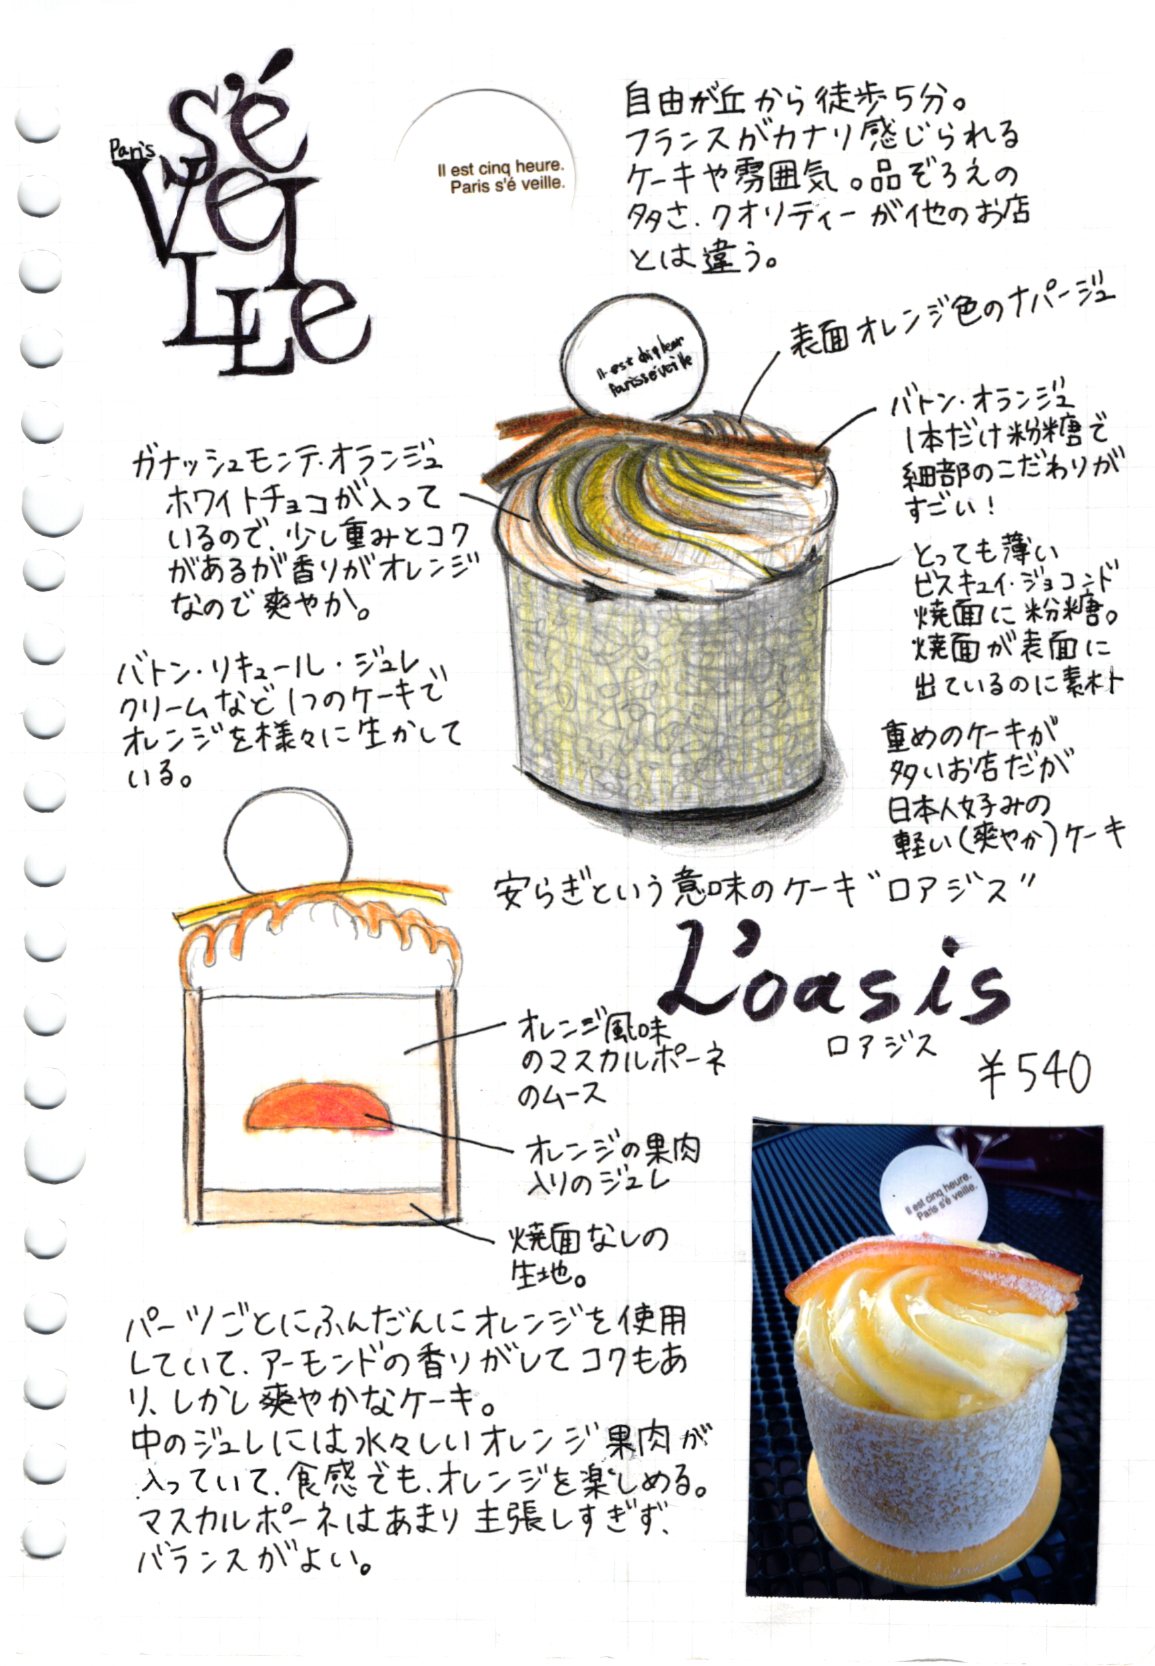 Paris
s'é
veI
LLe
Il est cinq heure.
Paris s'é veille.
自由が丘から徒歩5分。
フランスがカナリ感じられる
ケーキや雰囲気。品ぞろえの
多さ、クオリティーが他のお店
とは違う。
表面オレンジ色のナパージュ
バトン・オランジュ
1本だけ粉糖で
細部のこだわりが
すごい！
とっても薄い
ビスキュイ・ジョコンド
焼面に粉糖。
焼面が表面に
出ているのに素朴
重めのケーキが
多いお店だが
日本人好みの
軽い(爽やか)ケーキ
ガナッシュモンテ・オランジュ
ホワイトチョコが入って
いるので、少し重みとコク
があるが香りがオレンジ
なので爽やか。
バトン・リキュール・ジュレ
クリームなど1つのケーキで
オレンジを様々に生かして
いる。
安らぎという意味のケーキ“ロアジス”
L'oasis
ロアジス
¥540
オレンジ風味
のマスカルポーネ
のムース
オレンジの果肉
入りのジュレ
焼面なしの
生地。
パーツごとにふんだんにオレンジを使用
していて、アーモンドの香りがしてコクもあ
り、しかし爽やかなケーキ。
中のジュレには水々しいオレンジ果肉が
入っていて、食感でも、オレンジを楽しめる。
マスカルポーネはあまり主張しすぎず、
バランスがよい。
Il est cinq heure.
Paris s'é veille.